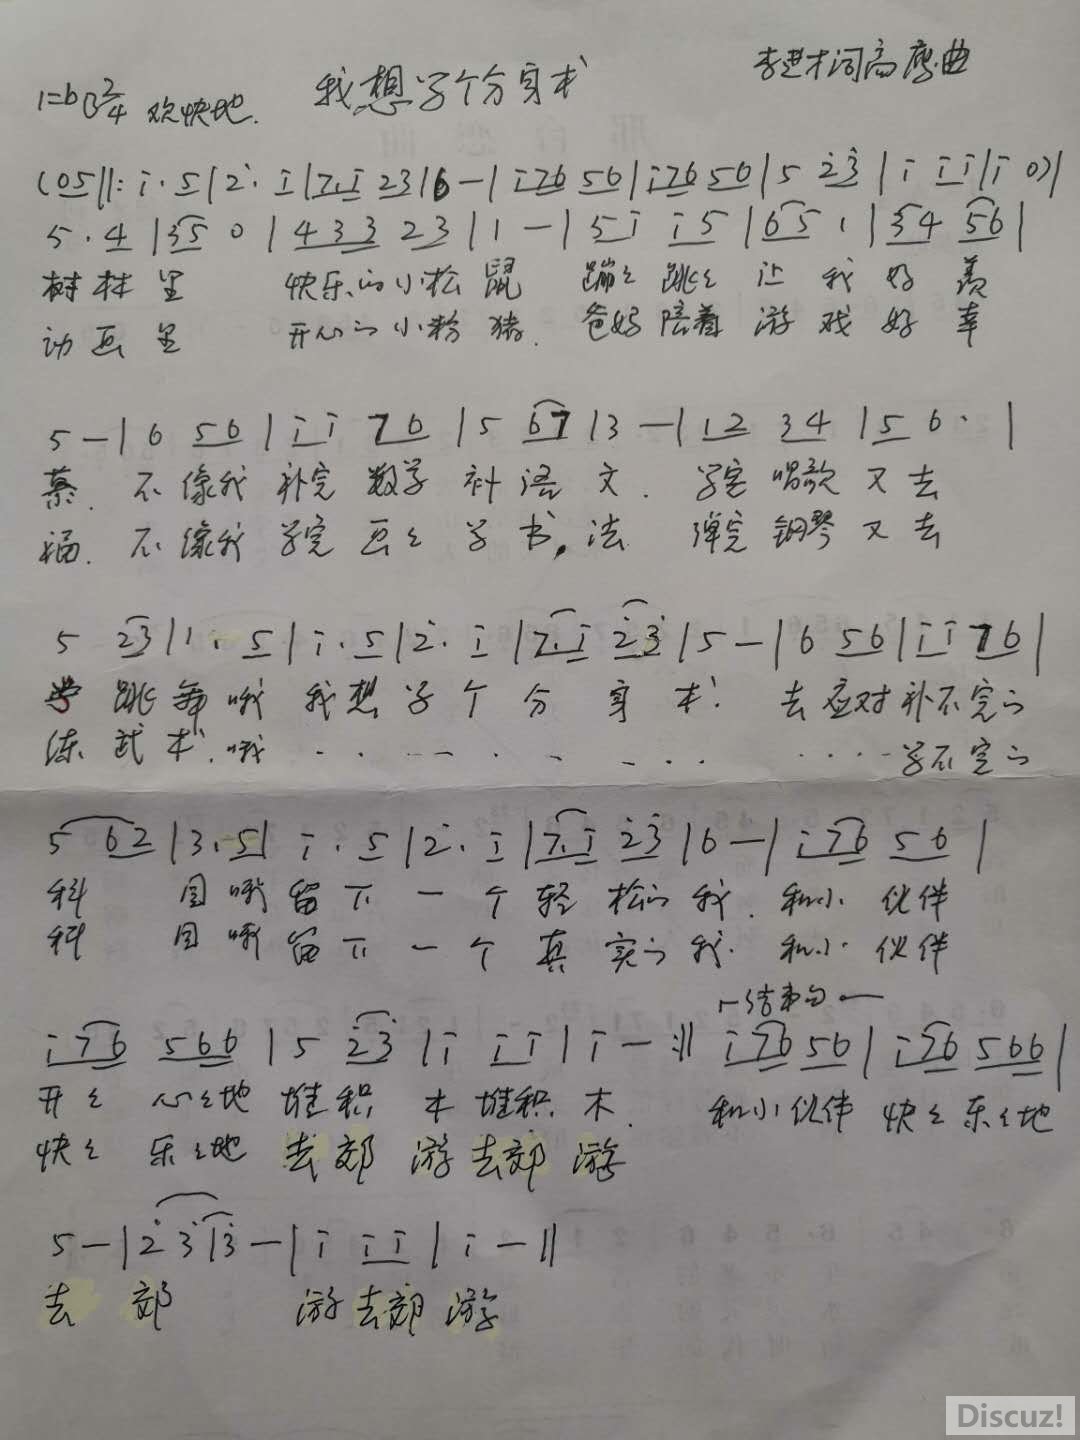 我想学个分身术
李进才词高鹰曲
1=bB 2/4 欢快地.
(05‖: i·5|2̇·i|7·i 23|6-|i76 56|i76 56|5 2̇3̇|i i i|i 0)|
5·4|35 0|433 23|1-|5i i5|65 1|34 56|
树林里 快乐的小松鼠 蹦々跳々让我好羡
动画里 开心的小粉猪. 爸妈陪着游戏好幸
5-|6 56|i i 76|5 67|3-|12 34|5 6·|
慕. 不像我补完数学补语文. 学完唱歌又去
福. 不像我学完画々学书法 弹完钢琴又去
5 23|1·5|i·5|2̇·i|7·i 2̇3̇|5-|6 56|i i 76|
学跳舞哦 我想学个分身术. 去应对补不完的
练武术.哦 · · · — · · — · · · · · · · 学不完的
5 62|3·5|i·5|2̇·i|7·i 2̇3̇|6-|i76 56|
科目哦留下一个轻松的我. 和小伙伴
科目哦留下一个真实的我. 和小伙伴
结束句
i76 566|5 2̇3̇|i i i|i-:‖ i76 56|i76 566|
开々心々地堆积木堆积木. 和小伙伴快々乐々地
快々乐々地去郊游去郊游
5-|2̇ 3̇|3̇-|i i i|i-‖
去郊游去郊游
Discuz!